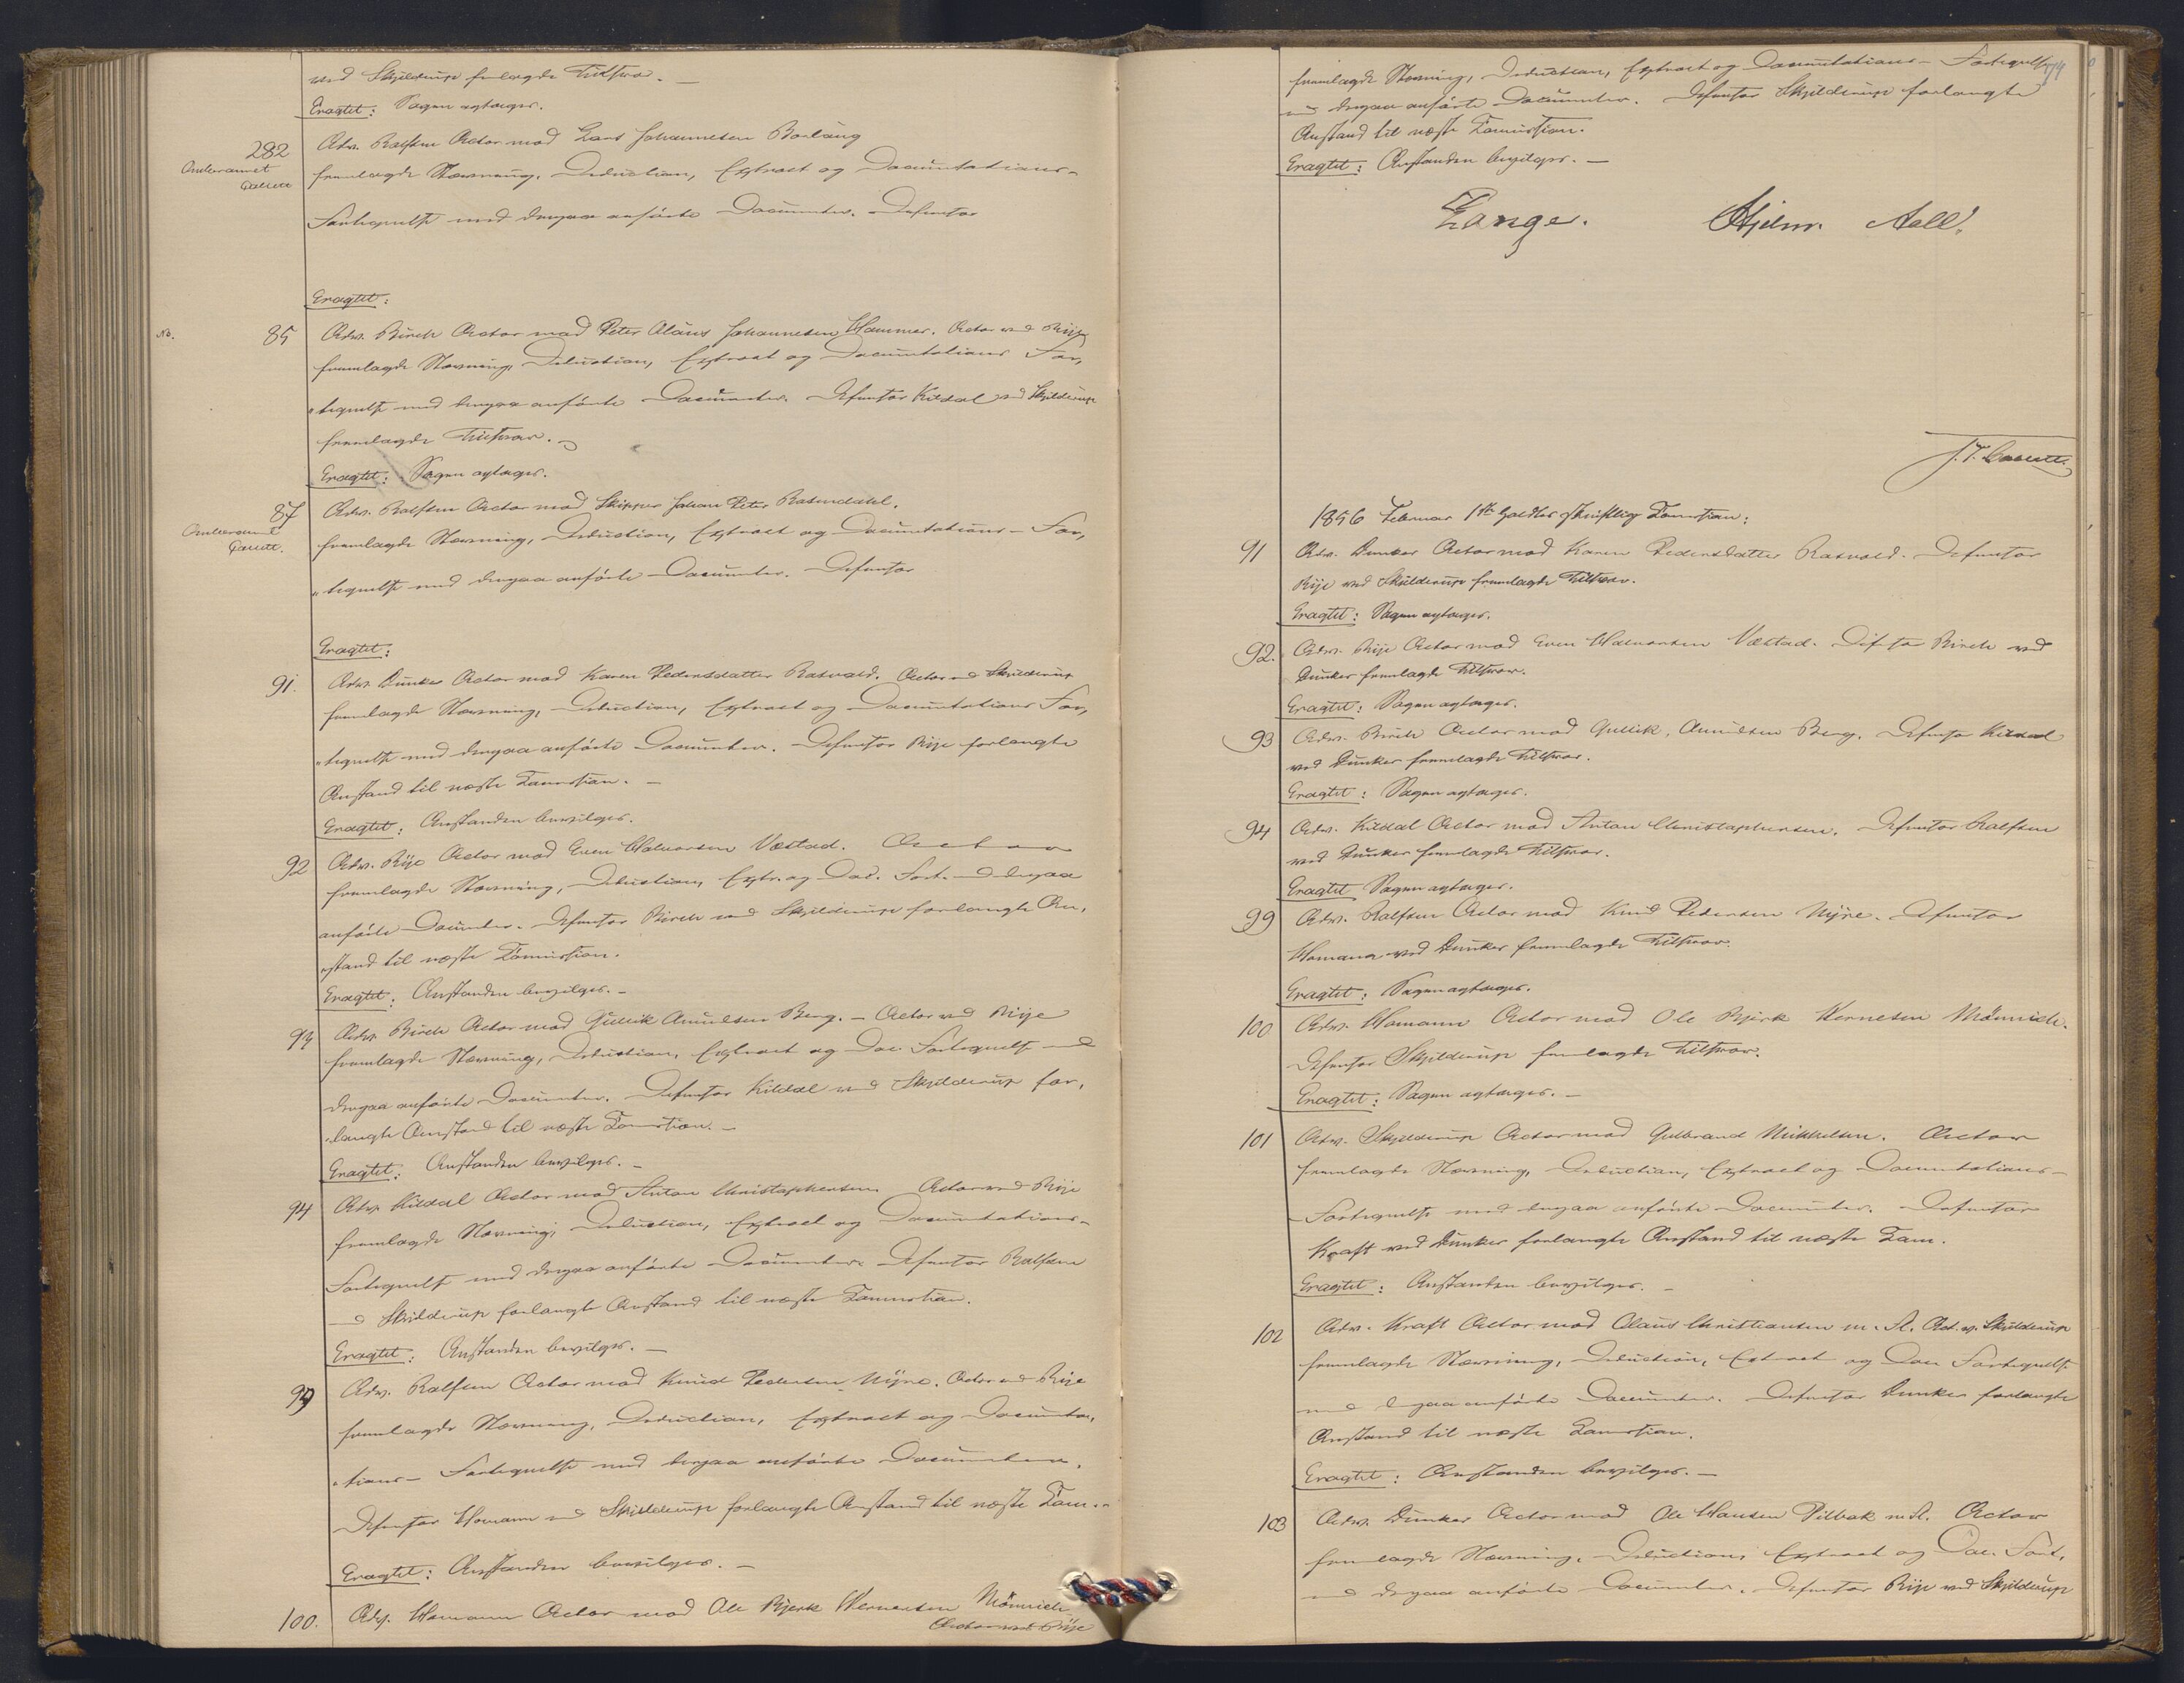 ved Skjelderup fremlagde Tilsvar. —
Eragtet: Sagen optages.
282 Adv. Rolfsen Actor mod Lars Johannesen Borlaug
fremlagde Stevning, Deduction, Extract og Documentations-
Fortegnelse med derpaa anførte Documenter. Defensor
Eragtet:
No. 85 Adv. Birch Actor mod Peter Olaus Johannesen Hammer. Actor ved Rije
fremlagde Stevning, Deduction, Extract og Documentations For,
„tegnelse med derpaa anførte Documenter. Defensor Kildal ved Skjelderup
fremlagde Tilsvar.
Eragtet: Sagen optages.
87 Adv. Rolfsen Actor mod Skipper Johan Peter Rosendahl.
fremlagde Stevning, Deduction, Extract og Documentations- For,
„tegnelse med derpaa anførte Documenter. Defensor
Eragtet:
91. Adv. Dunker Actor mod Karen Pedersdatter Rasvold. Actor ved Skjelderup
fremlagde Stevning, Deduction, Extract og Documentations For,
„tegnelse med derpaa anførte Documenter. Defensor Rije forlangte
Anstand til næste Session. —
Eragtet: Anstanden bevilges.
92 Adv. Rije Actor mod Even Halvorsen Væstad. Actor
fremlagde Stevning, Deduction, Extr. og Doc. Fort. med derpaa
anførte Documenter. Defensor Birch ved Skjelderup forlangte An,
„stand til næste Session.
Eragtet: Anstanden bevilges. —
93 Adv. Birch Actor mod Gullik Amundsen Berg. — Actor ved Rije
fremlagde Stevning, Deduction, Extract og Doc. Fortegnelse med
derpaa anførte Documenter. Defensor Kildal ved Skjelderup for,
„langte Anstand til næste Session. —
Eragtet: Anstanden bevilges. —
94 Adv. Kildal Actor mod Anton Christophersen. Actor ved Rije
fremlagde Stevning, Deduction, Extract og Documentations-
Fortegnelse med derpaa anførte Documenter. Defensor Rolfsen
ved Skjelderup forlangte Anstand til næste Session.
Eragtet: Anstanden bevilges. —
99 Adv. Rolfsen Actor mod Knud Pedersen Myre. Actor ved Rije
fremlagde Stevning, Deduction, Extract og Documenta,
„tions- Fortegnelse med derpaa anførte Documenter.
Defensor Homann ved Skjelderup forlangte Anstand til næste Sess. —
Eragtet: Anstanden bevilges. —
100. Adv. Homann Actor mod Ole Bjerk Wernersen Mönnich
Actor ved Rije
fremlagde Stevning, Deduction, Extract og Documentations- Fortegnelse
med derpaa anførte Documenter. Defensor Skjelderup forlangte
Anstand til næste Session.
Eragtet: Anstanden bevilges. —
Lange. Hjelm. Aall.
1856 Februar 1ste holdtes skriftlig Session:
91 Adv. Dunker Actor mod Karen Pedersdatter Rasvold. Defensor
Rije ved Skjelderup fremlagde Tilsvar.
Eragtet: Sagen optages.
92. Adv. Rije Actor mod Even Halvorsen Væstad. Defensor Birch ved
Dunker fremlagde Tilsvar.
Eragtet: Sagen optages.
93 Adv. Birch Actor mod Gullik Amundsen Berg. Defensor Kildal
ved Dunker fremlagde Tilsvar.
Eragtet: Sagen optages.
94 Adv. Kildal Actor mod Anton Christophersen. Defensor Rolfsen
ved Dunker fremlagde Tilsvar.
Eragtet Sagen optages.
99 Adv. Rolfsen Actor mod Knud Pedersen Myre. Defensor
Homann ved Dunker fremlagde Tilsvar.
Eragtet: Sagen optages.
100 Adv. Homann Actor mod Ole Bjerk Wernesen Mönnich.
Defensor Skjelderup fremlagde Tilsvar.
Eragtet: Sagen optages. —
101 Adv. Skjelderup Actor mod Gulbrand Mikkelsen. Actor
fremlagde Stevning, Deduction, Extract og Documentations-
Fortegnelse med derpaa anførte Documenter. Defensor
Kraft ved Dunker forlangte Anstand til næste Sess.
Eragtet: Anstanden bevilges. —
102 Adv. Kraft Actor mod Olaus Christiansen m. Fl. Act. v. Skjelderup
fremlagde Stevning, Deduction, Extract og Doc. Fortegnelse
med derpaa anførte Documenter. Defensor Dunker forlangte
Anstand til næste Session.
Eragtet: Anstanden bevilges. —
103 Adv. Dunker Actor mod Ole Hansen Pilbak m. Fl. Actor
fremlagde Stevning, Deduction, Extract og Doc. Fort.
med derpaa anførte Documenter. Defensor Rije ved Skjelderup